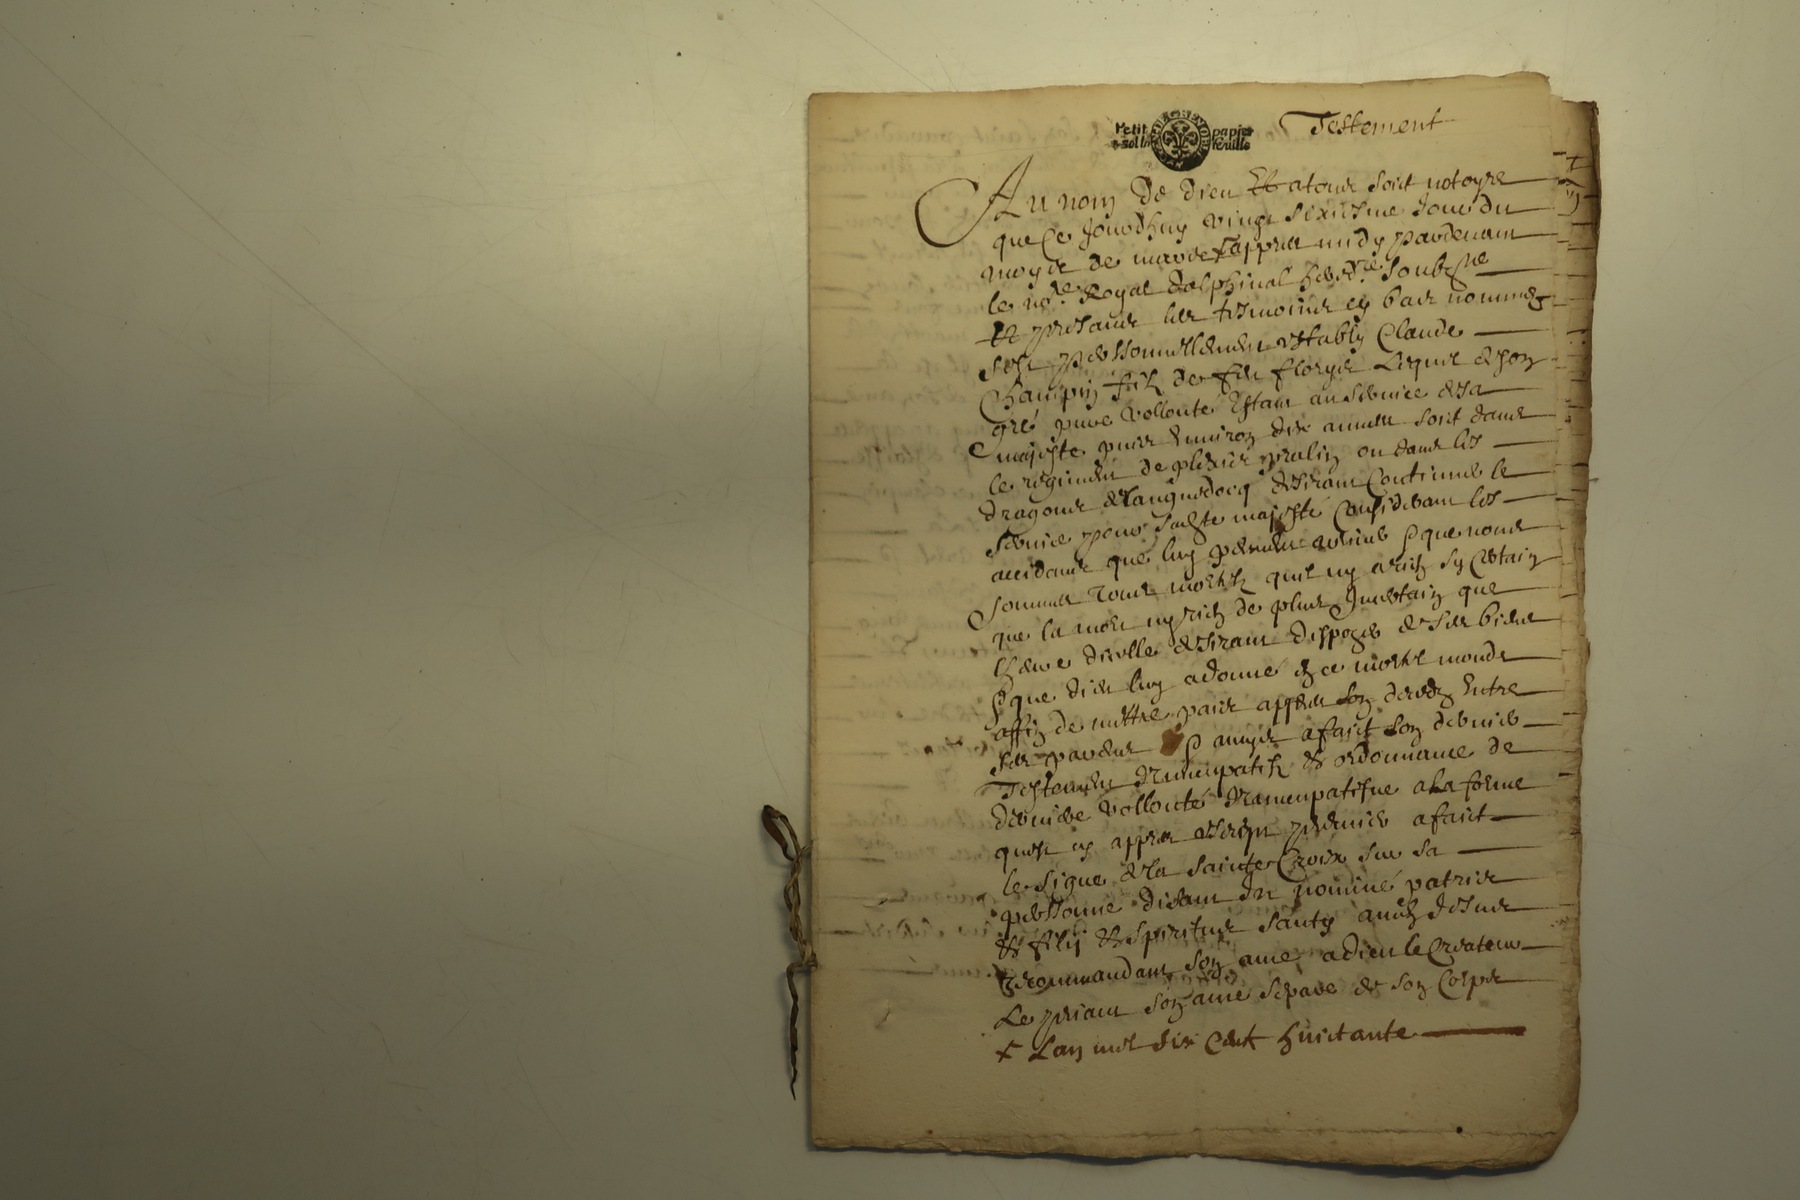 Petit papier
a sol la feuille
Testement
Au nom de dieu Et atous soict notoyre
que Ce Jourdhuy vingt sixiesme Jour du
moys de mars x appres midy pardevant
le nore Royal dalphinal heredre soubzne
Et presans les tesmoins cy bas nommez
sest personnellement establi Claude
Champin filz de feu Florys Lequel de son
gré pure vollonté Estant au service de sa
majesté puis Environ dix annees soict dans
le regiment de plessis pralin ou dans les
dragons de languedocq desirant Continuer le
service pour sadte majesté Considerant les
accidans que luy peuvent arriver que nous
sommes tous mortelz quil ny a rien sy Certain
que la mort ny rien de plus Incertain que
lheure dicelle desirant disposer de ses biens
que dieu luy a donné en ce mortel monde
affin de mettre paix appres son deceds Entre
ses parens a faict son dernier
Testement Nuncupatif Et ordonnance de
derniere vollonté Nuncupatifve a la forme
quest cy appres escript premier a faict
le signe de la sainte Croix sur sa
personne disant In nomine patris
Et filij Et spiritus santy amen Jesus
Recommandant son ame a dieu le Createur
Le priant son ame separe de son Corps
x Lan mil six Cent huictante